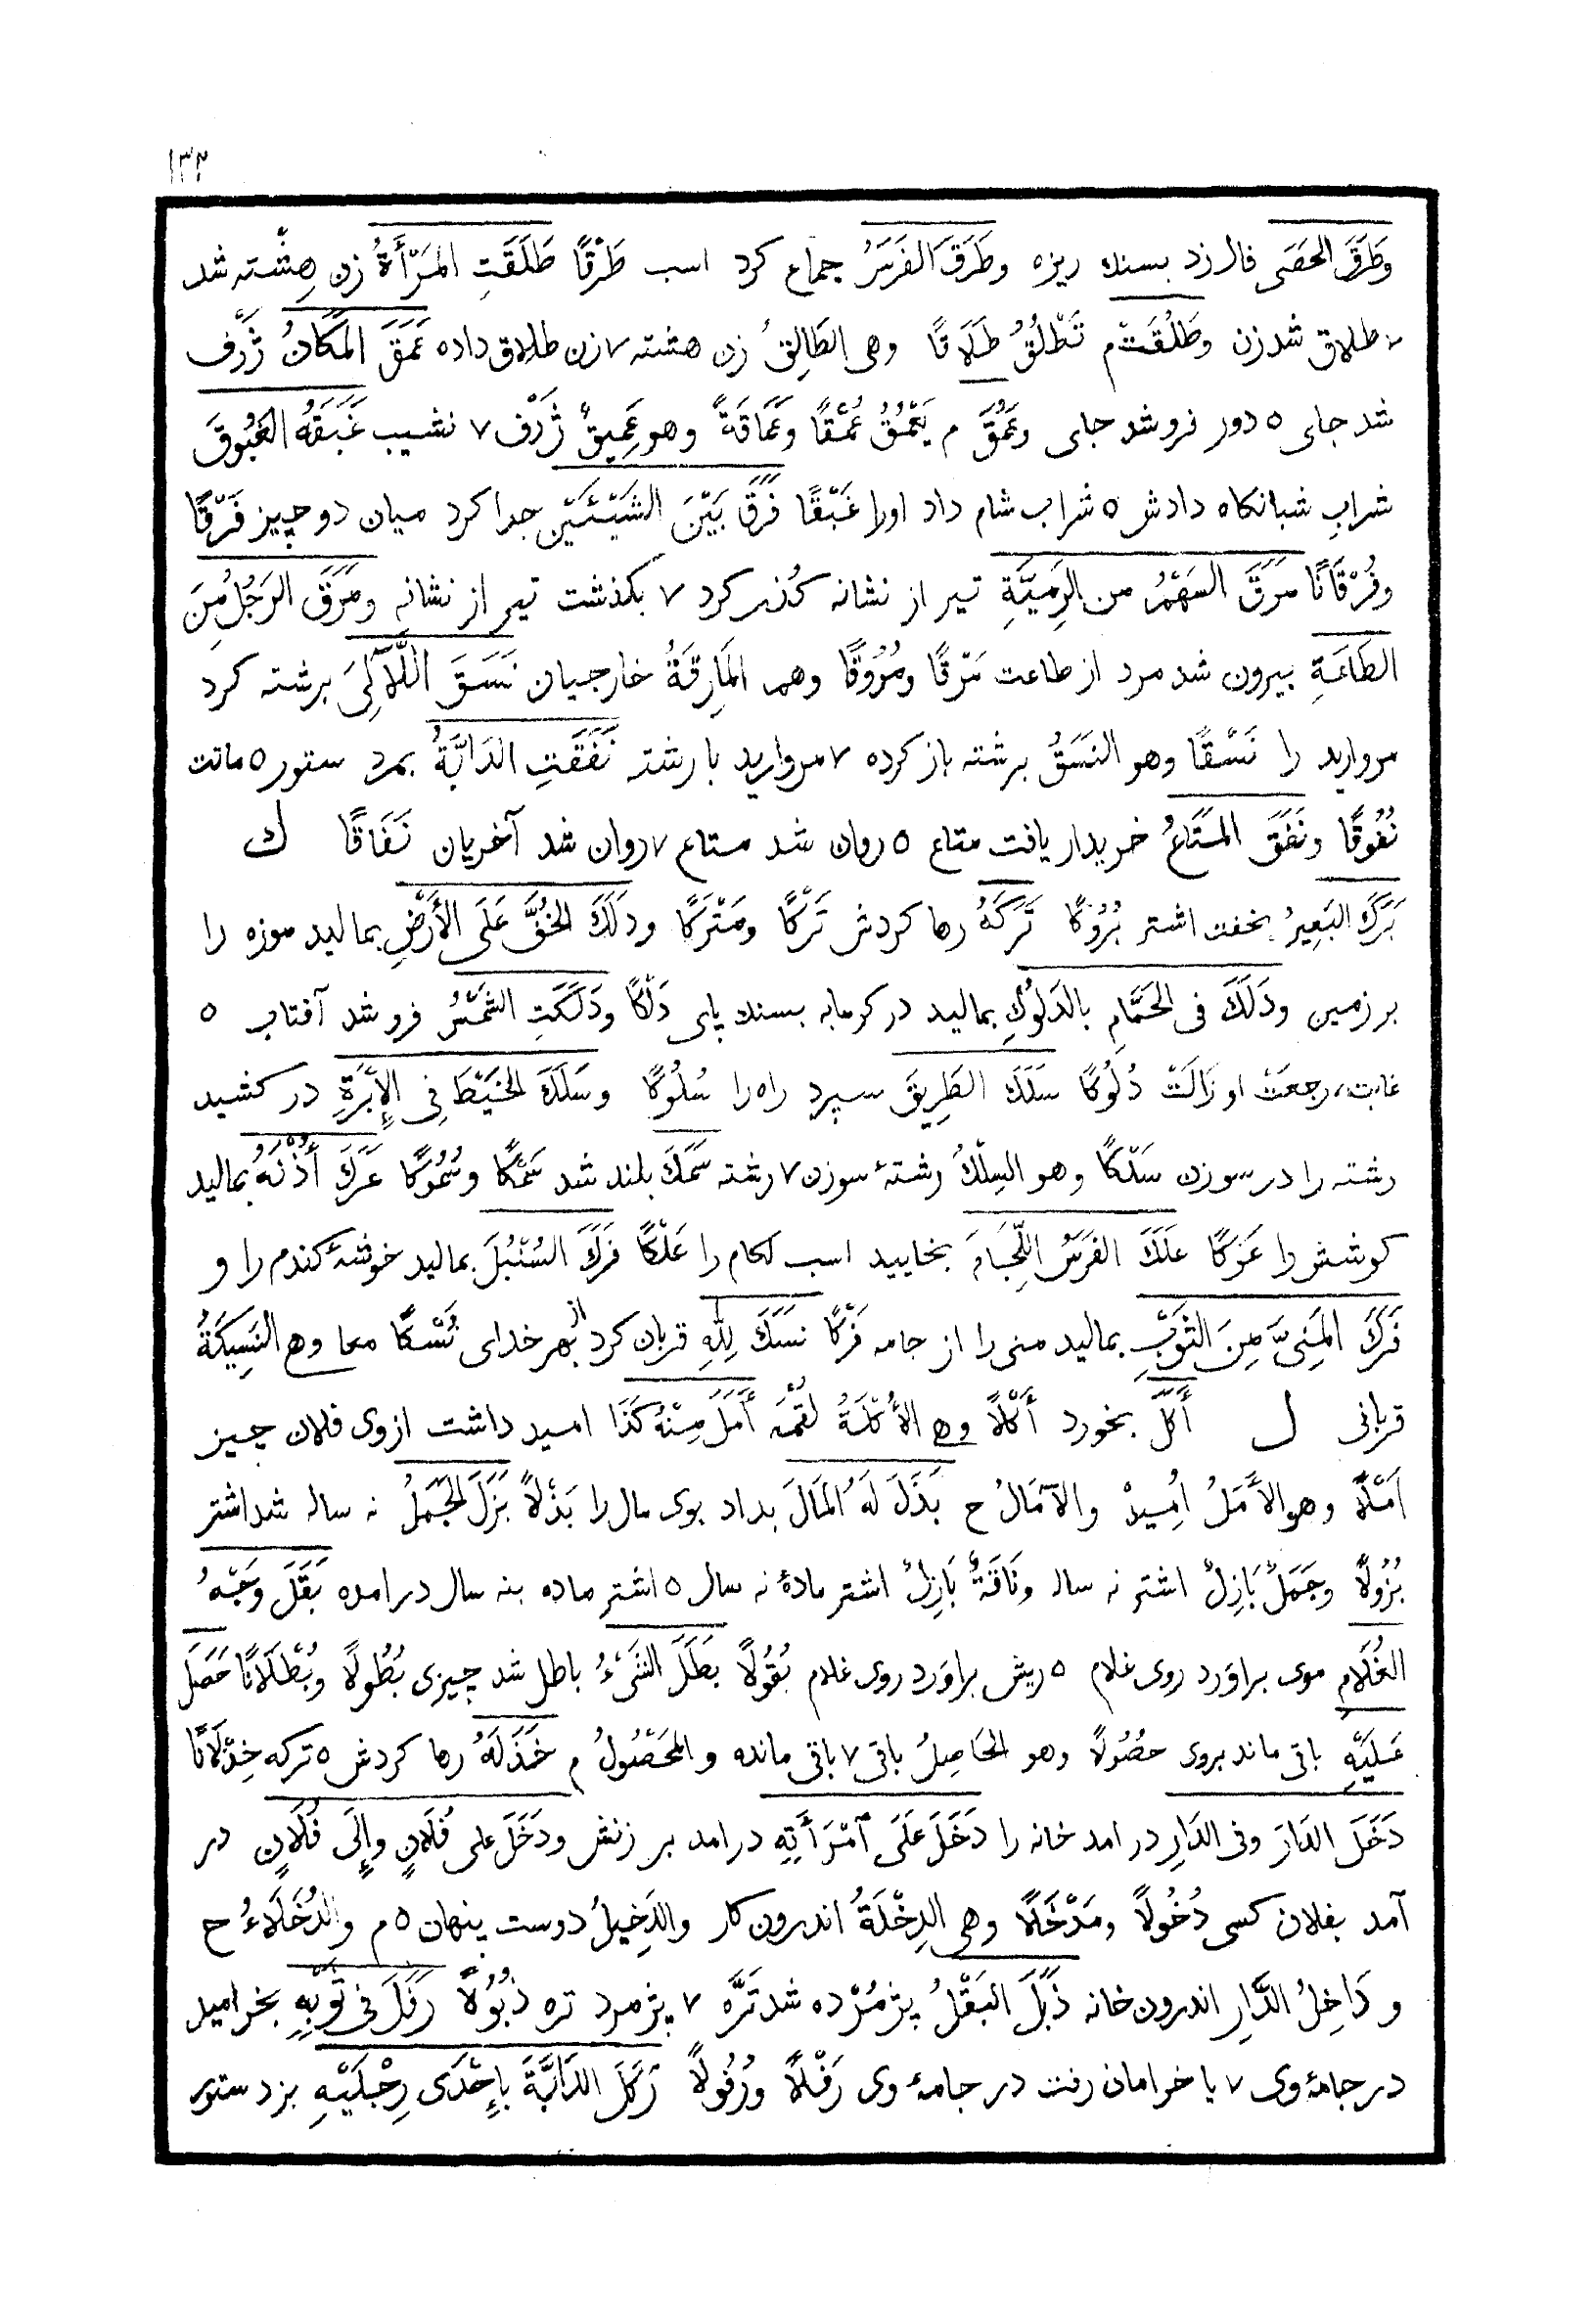 ١٣٢
وَطَرَقَ الحَصَى فال زد بسنك ريزه وطَرَقَ الفَرَسُ جماع كرد اسب طَرْقًا طَلَقَتِ المَرْأَةُ زن هِشْته شد
٧ طلاق شد زن وطَلُقَتْ م تَطْلُقُ طَلَاقًا وهى الطَالِقُ زن هشته ٧ زن طلاق داده عَمَقَ المَكَانُ ژَرْف
شد جاى ٥ دور فرو شد جاى وعَمُقَ م يَعْمُقُ عُمْقًا وعَمَاقَةً وهو عَمِيقٌ ژَرْف ٧ نشيب غَبَقَهُ الغَبُوقَ
شرابِ شبانكاه دادش ٥ شراب شام داد اورا غَبْقًا فَرَقَ بَيْنَ الشَيْئَيْنِ جدا كرد ميان دو چيز فَرْقًا
وفُرْقَانًا مَرَقَ السَهْمُ من الرَمِيَّةِ تير از نشانه كُذر كرد ٧ بكذشت تير از نشانه ومَرَقَ الرَجُلُ مِنَ
الطَاعَةِ بيرون شد مرد از طاعت مَرْقًا ومُرُوقًا وهم المَارِقَةُ خارجيان نَسَقَ اللَّآلِىَ برشته كرد
مرواريد را نَسْقًا وهو النَسَقُ برشته باز كرده ٧ مرواريد با رشته نَفَقَتِ الدَابَّةُ بمرد ستور ٥ ماتت
نُفُوقًا ونَفَقَ المَتَاعُ خريدار يافت متاع ٥ روان شد متاع ٧ روان شد آخريان نَفَاقًا ك
بَرَكَ البَعِيرُ بخفت اشتر بُرُوكًا تَرَكَهُ رها كردش تَرْكًا ومَتْرَكًا ودَلَكَ الخُفَّ عَلَى الأَرْضِ بماليد موزه را
بر زمين ودَلَكَ فى الحَمَّامِ بالدَلُوكِ بماليد در كرمابه بسنك پاى دَلْكًا ودَلَكَتِ الشَمْسُ فرو شد آفتاب ٥
غابت، رجعَتْ او زَالَتْ دُلُوكًا سَلَكَ الطَرِيقَ سپرد راه را سُلُوكًا وسَلَكَ الخَيْطَ فِى الإِبْرَةِ در كشيد
رشته را در سوزن سَلْكًا وهو السِلْكُ رشتهٔ سوزن ٧ رشته سَمَكَ بلند شد سَمْكًا وسُمُوكًا عَرَكَ أُذْنَهُ بماليد
كوشش را عَرْكًا عَلَكَ الفَرَسُ اللِّجَامَ بخاييد اسب لكام را عَلْكًا فَرَكَ السُنْبُلَ بماليد خوشهٔ كندم را و
فَرَكَ المَنِىَّ مِنَ الثَوْبِ بماليد منى را از جامه فَرْكًا نَسَكَ لِلّٰهِ قربان كرد از بهر خداى نُسْكًا معا وهى النَسِيكَةُ
قربانى ل أَكَلَ بخورد أَكْلًا وهى الأُكْلَةُ لُقْمَه أَمَلَ مِنْهُ كَذَا اميد داشت از وى فلان چيز
أَمْلًا وهو الأَمَلُ اُمِيدْ والآمَالُ ح بَذَلَ لَهُ المَالَ بداد بوى مال را بَذْلًا بَزَلَ الجَمَلُ نه ساله شد اشتر
بُزُولًا وجَمَلٌ بَازِلٌ اشتر نه ساله ونَاقَةٌ بَازِلٌ اشتر مادهٔ نه سال ٥ اشتر ماده بنه سال در امده بَقَلَ وَجْهُ
الغُلَامِ موى براوَرد روى غلام ٥ ريش براوَرد روى غلام بُقُولًا بَطَلَ الشَىْءُ باطل شد چيزى بُطُولًا وبُطْلَانًا حَصَلَ
عَلَيْهِ باقى ماند بروى حُصُولًا وهو الحَاصِلُ باقى ٧ باقى مانده والمَحْصُولُ م خَذَلَهُ رها كردش ٥ تركه خِذْلَانًا
دَخَلَ الدَارَ وفى الدَارِ در امد خانه را دَخَلَ عَلَى ٱمْرَأَتِهِ درامد بر زنش ودَخَلَ على فُلَانٍ وإِلَى فُلَانٍ در
آمد بفلان كسى دُخُولًا ومَدْخَلًا وهى الدِخْلَةُ اندرون كار والدَخِيلُ دوست پنهان ٥ م والدُخَلَاءُ ح
و دَاخِلُ الدَّارِ اندرون خانه ذَبَلَ البَقْلُ پژمُرْده شد تَرَّه ٧ پژمرد تره ذُبُولًا رَفَلَ فى ثَوْبِهِ بخراميد
در جامهٔ وى ٧ يا خرامان رفت در جامهٔ وى رَفْلًا ورُفُولًا رَكَلَ الدَابَّةَ بِإِحْدَى رِجْلَيْهِ بزد ستور